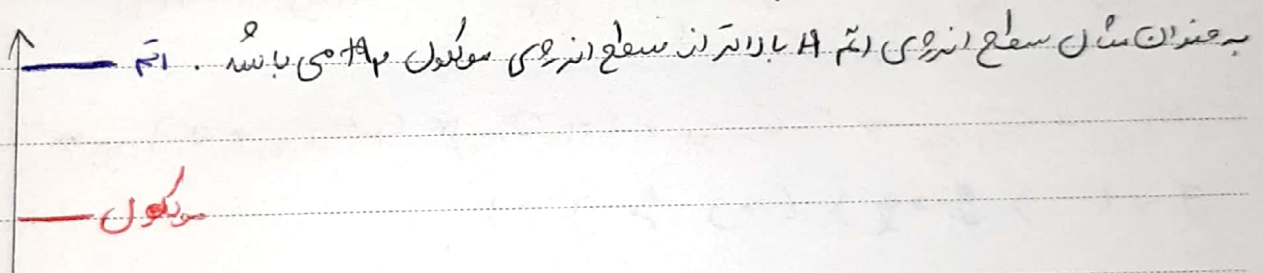 به عنوان مثال سطح انرژی اتم H بالاتر از سطح انرژی مولکول H₂ می باشد . اتم
مولکول